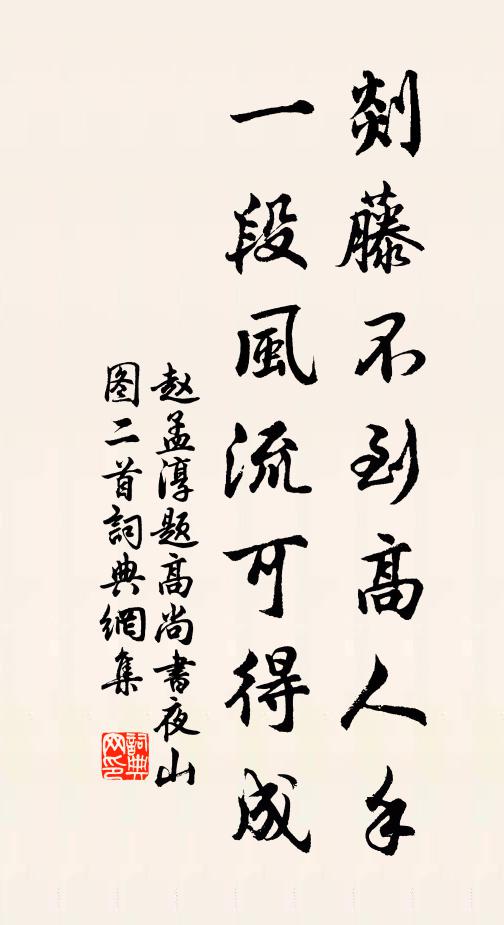 剡藤不到高人手
一段風流可得成
赵孟淳题高尚書夜山
图二首詞典網集
詞典网印